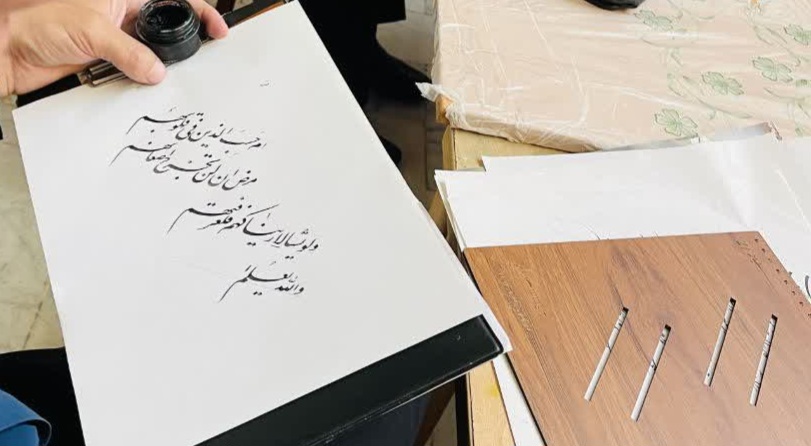 ام حسب الذین فی قلوبهم
مرض ان لن یخرج اضغانهم
ولو نشا لاریناکهم فلعرفتهم
والله یعلم